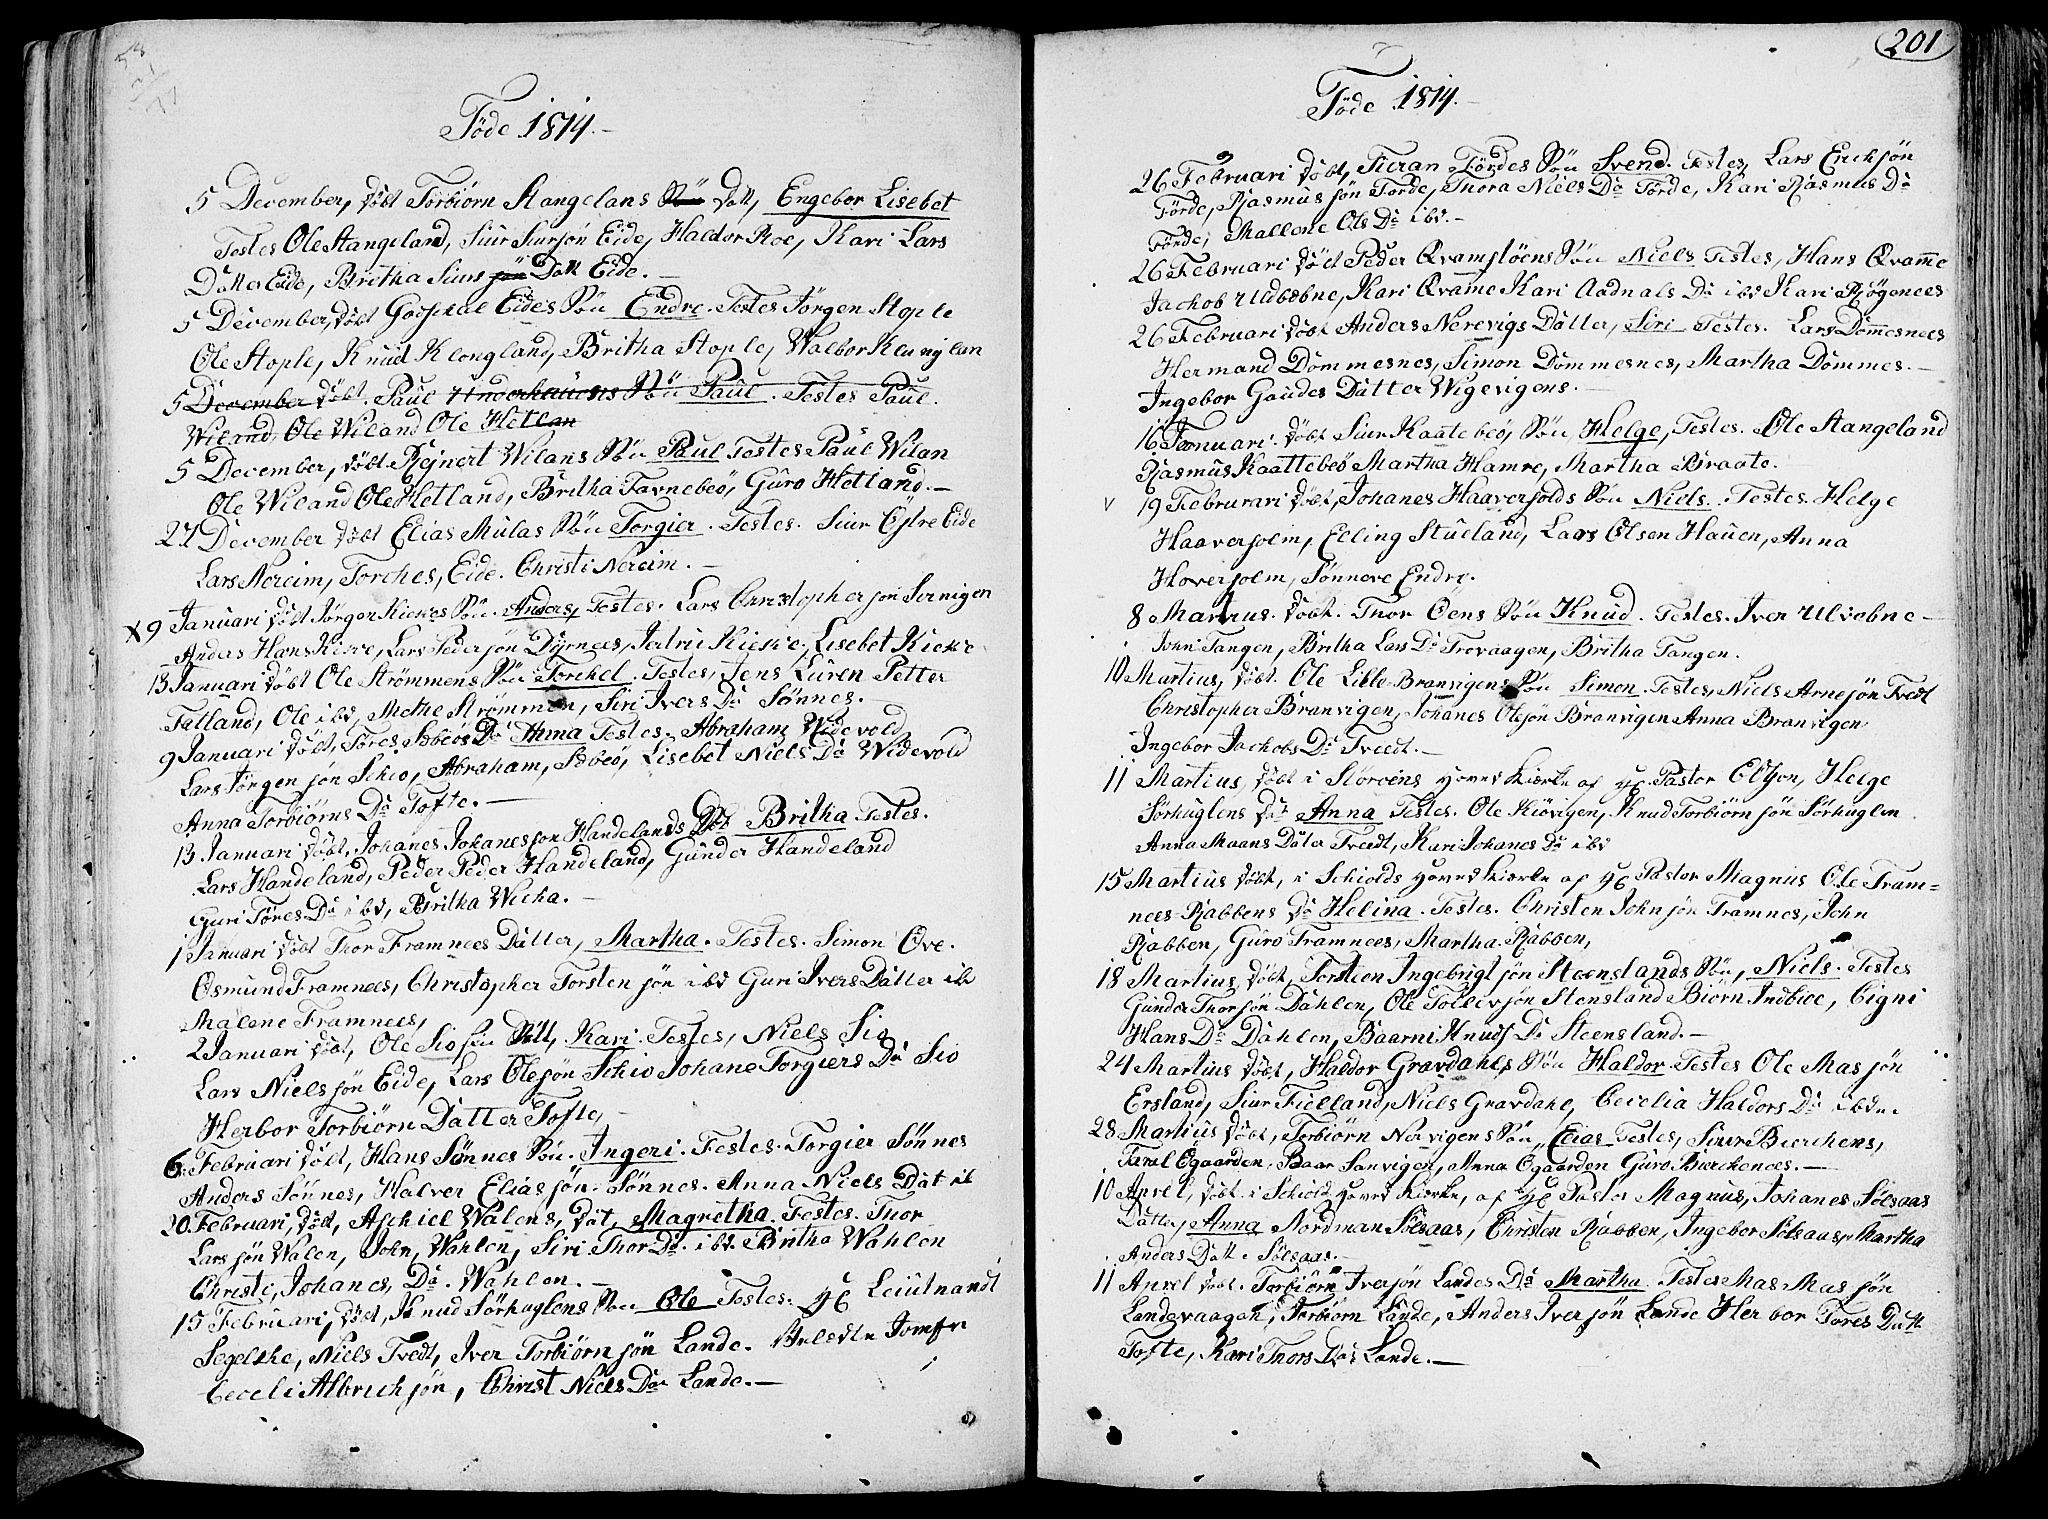 Föde 1814.-
5 December, döbt Torbiörn Stangelans Sön Datt, Engebor Lisebet
Testes Ole Stangeland, Siur Siursön Eide, Haldor Roe, Kari Lars
Datter Eide, Britha Siurs jön Datt Eide.-
5 December, döbt Goosphal Eides Sön Endre. Testes Jörgen Stople
Ole Stople, Knud Klongland, Britha Stople, Walbor Klunglan
5 December döbt. Paul Sön Paul. Testes Paul.
Wiland, Ole Wiland Ole Hetlan
5 December, döbt Rejnert Wilans Sön Paul Testes Paul Wilan
Ole Wiland Ole Hetland, Britha Tavneboö, Guro Hetland.-
27 December döbt Elias Mulas Sön Torgier. Testes. Siur Östre Eide
Lars Nereim, Torches, Eide. Christi Nereim.-
X 9 Januari döbt Jörgen Kiekes Sön. Anders, Testes. Lars Christopher jön Sernigen
Anders Hans Kieke, Lars Pedersjön Dyrnees, Kieke, Lisebet Kieke
13 Januari döbt Ole Strömmens Sön Torchel. Testes, Jens Luren Petter
Tatland, Ole ibd, Methe Strömmen, Siri Ivers Da Sönnes.
9 Januari döbt, Tores Da Anna Testes. Abraham Widevold
Lars Jörgen jön Schio, Abraham, Lisebet Niels Da Widevold
Anna Torbiörns Da Tofte.-
13 Januari döbt, Johanes Johanesson Handelands Dat Britha Testes.
Lars Handeland, Peder Peder Handeland, Gunder Handeland
Guri Töres Da ibd, Britha Wicha.-
1 Januari döbt Thor Framnees Datter, Martha. Testes. Simon Öve.
Osmund Framnees, Christopher Torsten jön ibd Guri Ivers Datter ib
Malene Framnees,
2 Januari döbt, Ole Sio Datt, Kari. Testes, Niels Sio
Lars Niels jön Eide, Lars Olejön Schio Johane Torgiers Da Sio
Herbor Torbiörn Datter Tofte,
6 Februari döbt, Hans Sönnes Sön. Ingeri. Testes. Torgier Sönnes
Anders Sönnes, Halver Elias jön. Sönnes. Anna Niels Dat ib
20. Februari, döbt, Aschiel Walens, Dat, Magretha. Testes. Thor
Lars jön Walen, John, Wahlen, Siri Thor Da. ibd. Britha Wahlen
Christi, Johanes, Da. Wahlen.-
15 Februari, döbt, Knud Sörhuglens Sön Ole Testes. Hr Leiutnandt
Segelche, Niels Tvedt, Iver Torbiörn jön Lande. Jomfr
Ceceli Albrichjön, Christ Niels Da Lande.-
201
Föde 1814.-
26 Februari döbt, Tieran Tördes Sön Svend. Testes, Lars Erichjön
Törde, Rasmus jön Torde, Thora Niels Da Törde, Kari Rasmus Da
Törde, Mallene Ols Da ibd.-
26 Februari döbt Peder Qvamslöens Sön Niels Testes, Hans Qvame
Jachob Udbæbne, Kari Qvame Kari Aadnals Da ibd Kari Rögenees
26 Februari döbt Anders Nerevigs Datter, Siri Testes. Lars Dömesnees
Hermand Dömmesnes, Simon Dömmesnes, Martha Dömmes.-
Ingebor Gaudes Datter Wigevigens.-
16 Januari. döbt Siur Kaatebeö, Sön Helge, Testes. Ole Stangeland
Rasmus Kaattebeö Martha Hamre, Martha Braate.
v 19 Februrari döbt, Johanes Haaverholds Sön Niels. Testes. Helge
Haaverholm, Elling Stueland, Lars Olsen Hauen, Anna
Hoverholm, Sönneve Endre.
8 Martius. döbt. Thor Öens Sön Knud. Testes. Iver Ulvebne-
John Tangen, Britha Lars Da Trovaagen, Britha Tangen.
10 Martius, döbt. Ole Lille Branvigens Sön Simon. Testes, Niels Arnejön Tvedt
Christopher Branvigen, Johanes Olejön Branvigen Anna Branvigen
Ingebor Jachobs Da Tvedt.-
11 Martius döbt i Störöens Hoved Kierke af Hr Pastor, Helge
Sörhuglens Da Anna Testes. Ole Kiövigen, Knud Torbiörn jön Sörhuglen.
Anna Maans Dater Tvedt, Kari Johanes Da ibd
15 Martius döbt, i Schiolds Hoved kierke af Hr Pastor Magnus Ole Fram=
nees Rabbens Da Helina. Testes. Christen John jön Framnes, John
Rabben, Guro Framnees, Martha Rabben,
18 Martius, döbt, Torsteen Ingebrigt jön Steenslands Sön, Niels. Testes
Gunder Thor jön Dahlen, Ole Tollev jön Stensland Biörn Indbice, Cigni
Hans Da Dahlen, Baarni Knuds Da Steensland.-
24 Martius döbt, Haldor Gravdahls Sön Haldor. Testes Ole Mas jön
Ersland, Siur Fielland, Niels Gravdahl, Cecelia Haldors Da ibd.
28 Martius döbt, Torbiörn Norvigens Sön, Elias Testes, Siur Bierchens,
Taral Ögaarden, Baar Sanvigen, Anna Ögaarden Guro Bierchenees.-
10 Aprel, döbt i Schiold Hoved Kierke, af Hr Pastor Magnus, Johanes Sölsaas
Datter, Anna Nordman Sölsaas, Christen Rabben, Ingebor Sölsaas, Martha
Anders Datt. Sölsaas.-
11 Aprel döbt. Torbiörn Iversjön Landes Da Martha. Testes Mas Mas jön
Landevaagen, Torbiörn Lande, Anders Iver jön Lande Her bor Tores Datt
Tofte, Kari Thors Da Lande.-